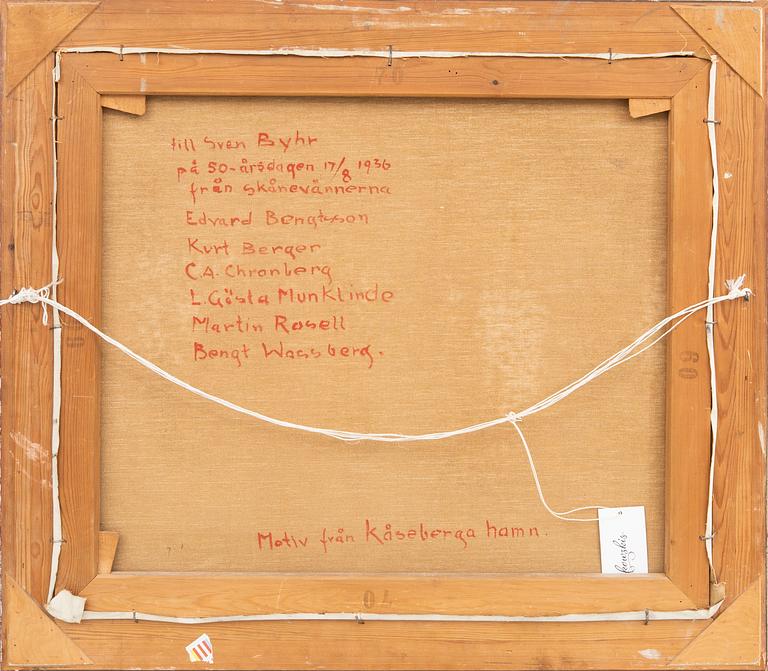 70
till Sven Byhr
på 50-årsdagen 17/8 1936
från skånevännerna
Edvard Bengtsson
Kurt Berger
C.A. Chronberg
L. Gösta Munklinde
Martin Rosell
Bengt Wassberg.
60
Motiv från Kåseberga hamn.
70